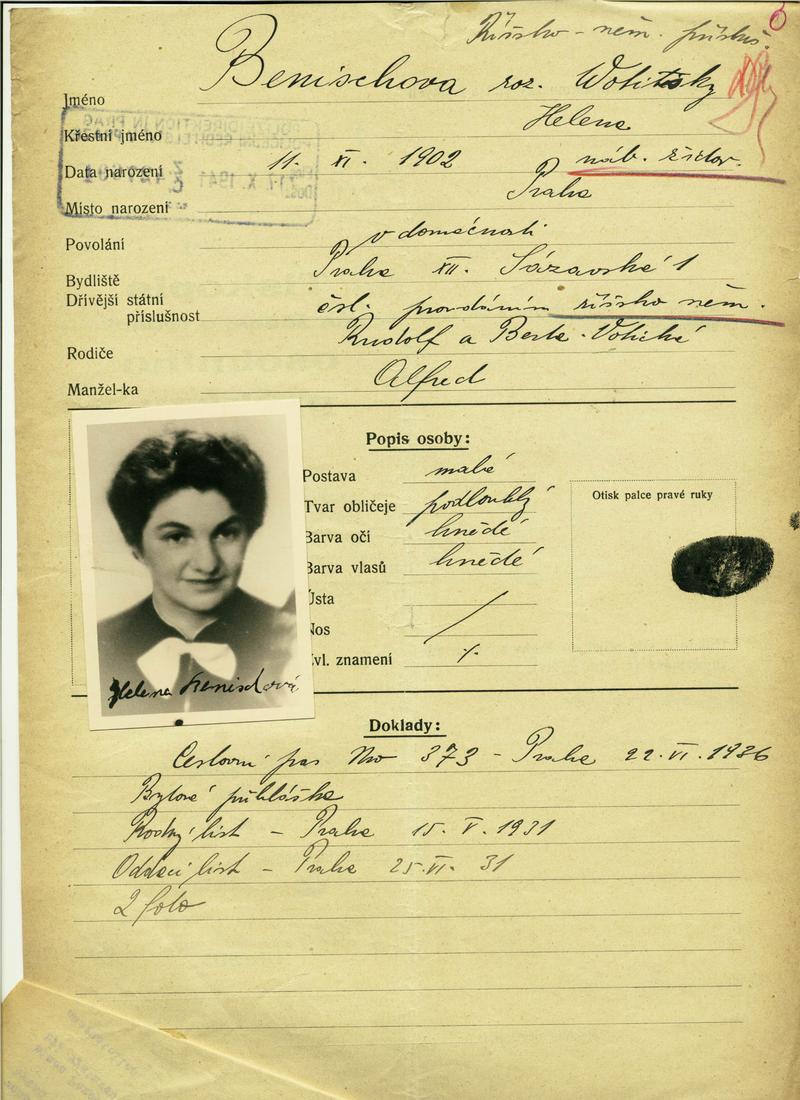 Říšsko-něm. přísluš.
Jméno Benischova roz. Wotitzky
Křestní jméno Helena
Data narození 11. XI. 1902 náb. židov.
Místo narození Praha
Povolání v domácnosti
Bydliště Praha XII. Sázavská 1
Dřívější státní
příslušnost čsl. provdáním říšsko něm.
Rodiče Rudolf a Berta Votické
Manžel-ka Alfred
POLIZEIDIREKTION IN PRAG
Popis osoby:
Postava malé
Tvar obličeje podlouhlý
Barva očí hnědé
Barva vlasů hnědé
Ústa
Nos
Zvl. znamení
Otisk palce pravé ruky
Helena Benischová
Doklady:
Cestovní pas No 373 - Praha 22. VI. 1936
Bytová přihláška
Rodný list - Praha 15. V. 1931
Oddací list - Praha 25. VI. 31
2 foto